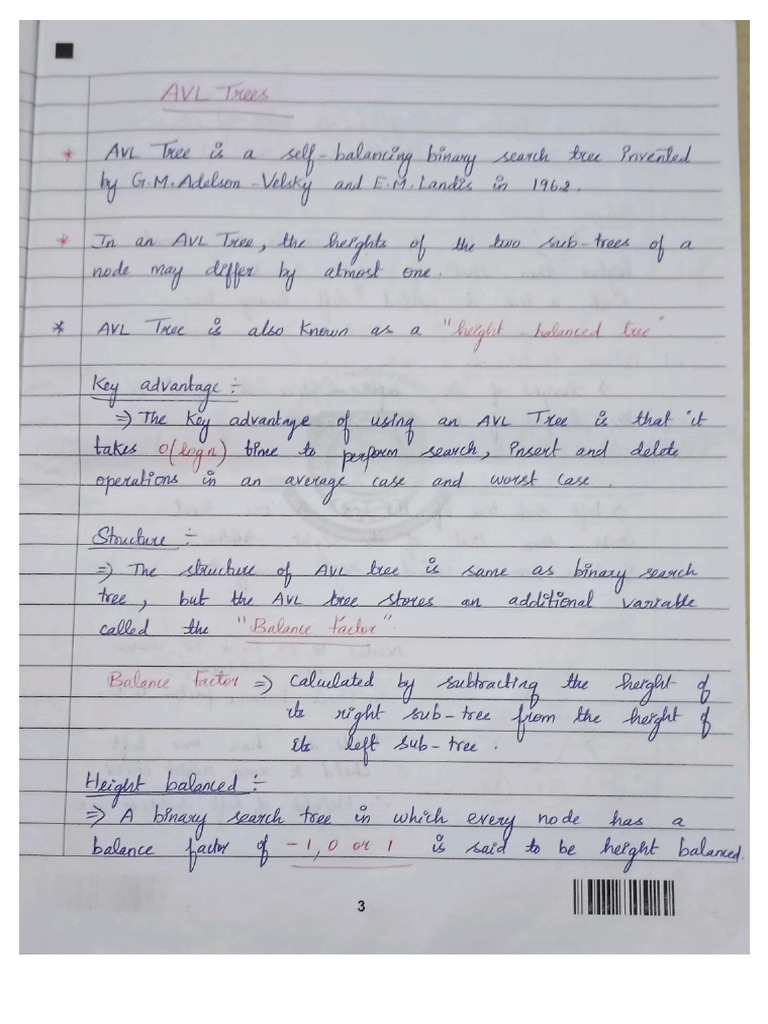 AVL Trees
* AVL Tree is a self-balancing binary search tree invented
by G.M. Adelson-Velsky and E.M. Landis in 1962.
* In an AVL Tree, the heights of the two sub-trees of a
node may differ by atmost one.
* AVL Tree is also known as a "height-balanced tree".
Key advantage :-
=> The key advantage of using an AVL Tree is that it
takes O(logn) time to perform search, insert and delete
operations in an average case and worst case.
Structure :-
=> The structure of AVL tree is same as binary search
tree, but the AVL tree stores an additional variable
called the "Balance Factor".
Balance Factor => Calculated by subtracting the height of
its right sub-tree from the height of
its left sub-tree.
Height balanced :-
=> A binary search tree in which every node has a
balance factor of -1, 0 or 1 is said to be height balanced.
3